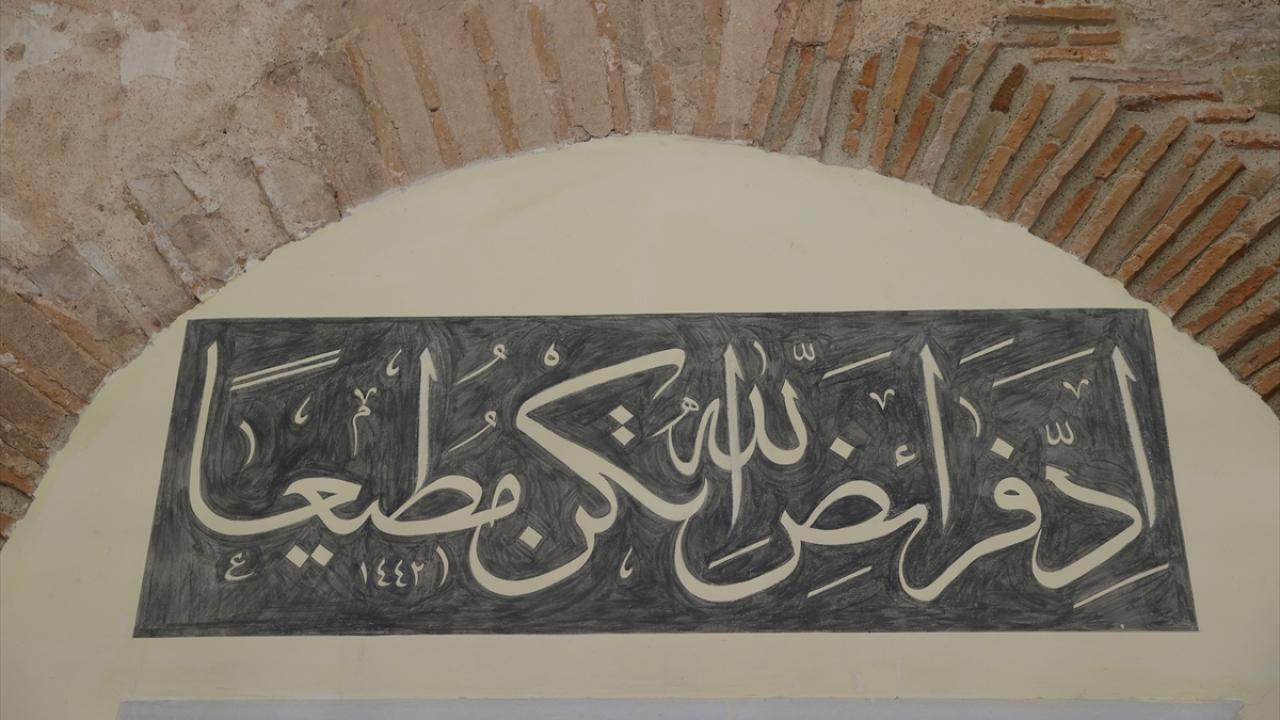 اِدِّ فَرَائِضَ اللّٰهِ تَكُنْ مُطِيعًا
١٤٤٢